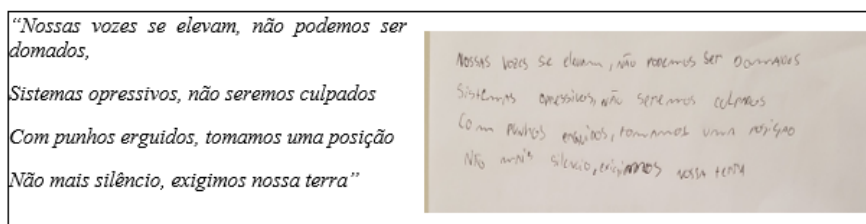 “Nossas vozes se elevam, não podemos ser
domados,
Sistemas opressivos, não seremos culpados
Com punhos erguidos, tomamos uma posição
Não mais silêncio, exigimos nossa terra”
Nossas vozes se elevam, não podemos ser domados
Sistemas opressivos, não seremos culpados
Com punhos erguidos, tomamos uma posição
Não mais silencio, exigimos nossa terra